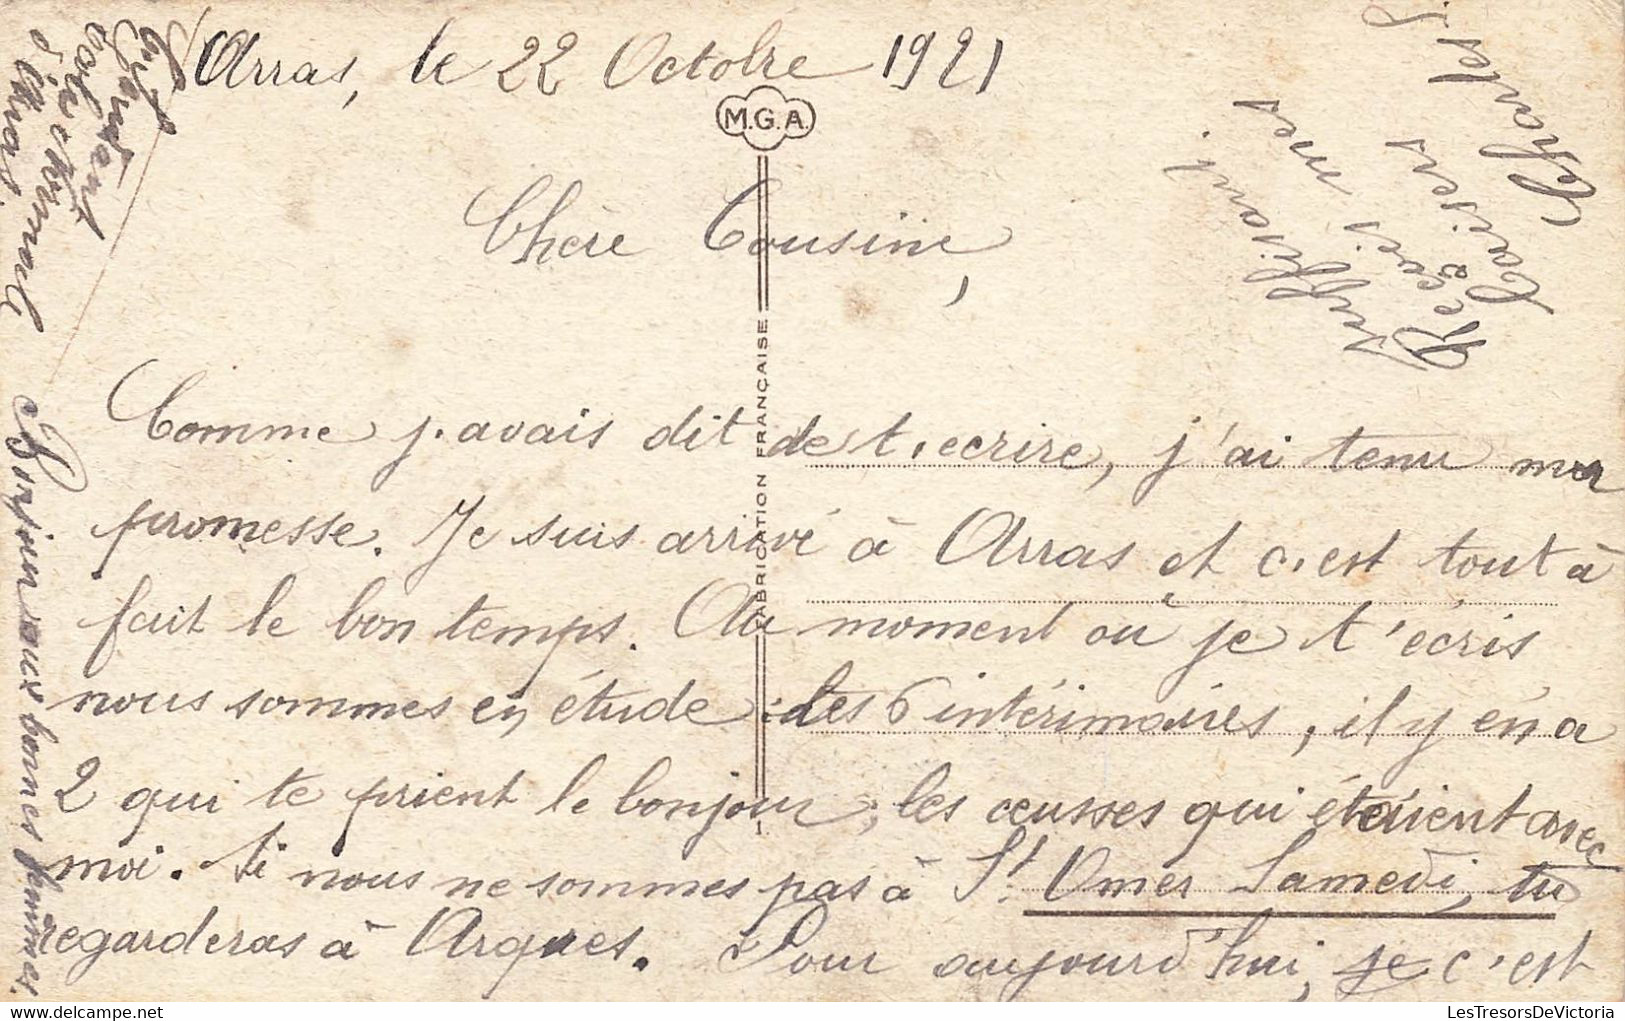 Arras, le 22 Octobre 1921
M.G.A.
Chère Cousine,
Comme j'avais dit de t'ecrire, j'ai tenu ma
promesse. Je suis arrivé à Arras et c'est tout à
fait le bon temps. Au moment où je t'écris
nous sommes en étude : les 6 intérimaires, il y en a
2 qui te prient le bonjour, les ceusses qui étaient avec
moi. Si nous ne sommes pas à St Omer Samedi, tu
regarderas à Arques. Pour aujourd'hui, je c'est
suffisant.
Reçois mes
baisers
Charles
FABRICATION FRANÇAISE
volant
d'Arras.
Bonjour aux bonnes femmes.
LesTresorsDeVictoria